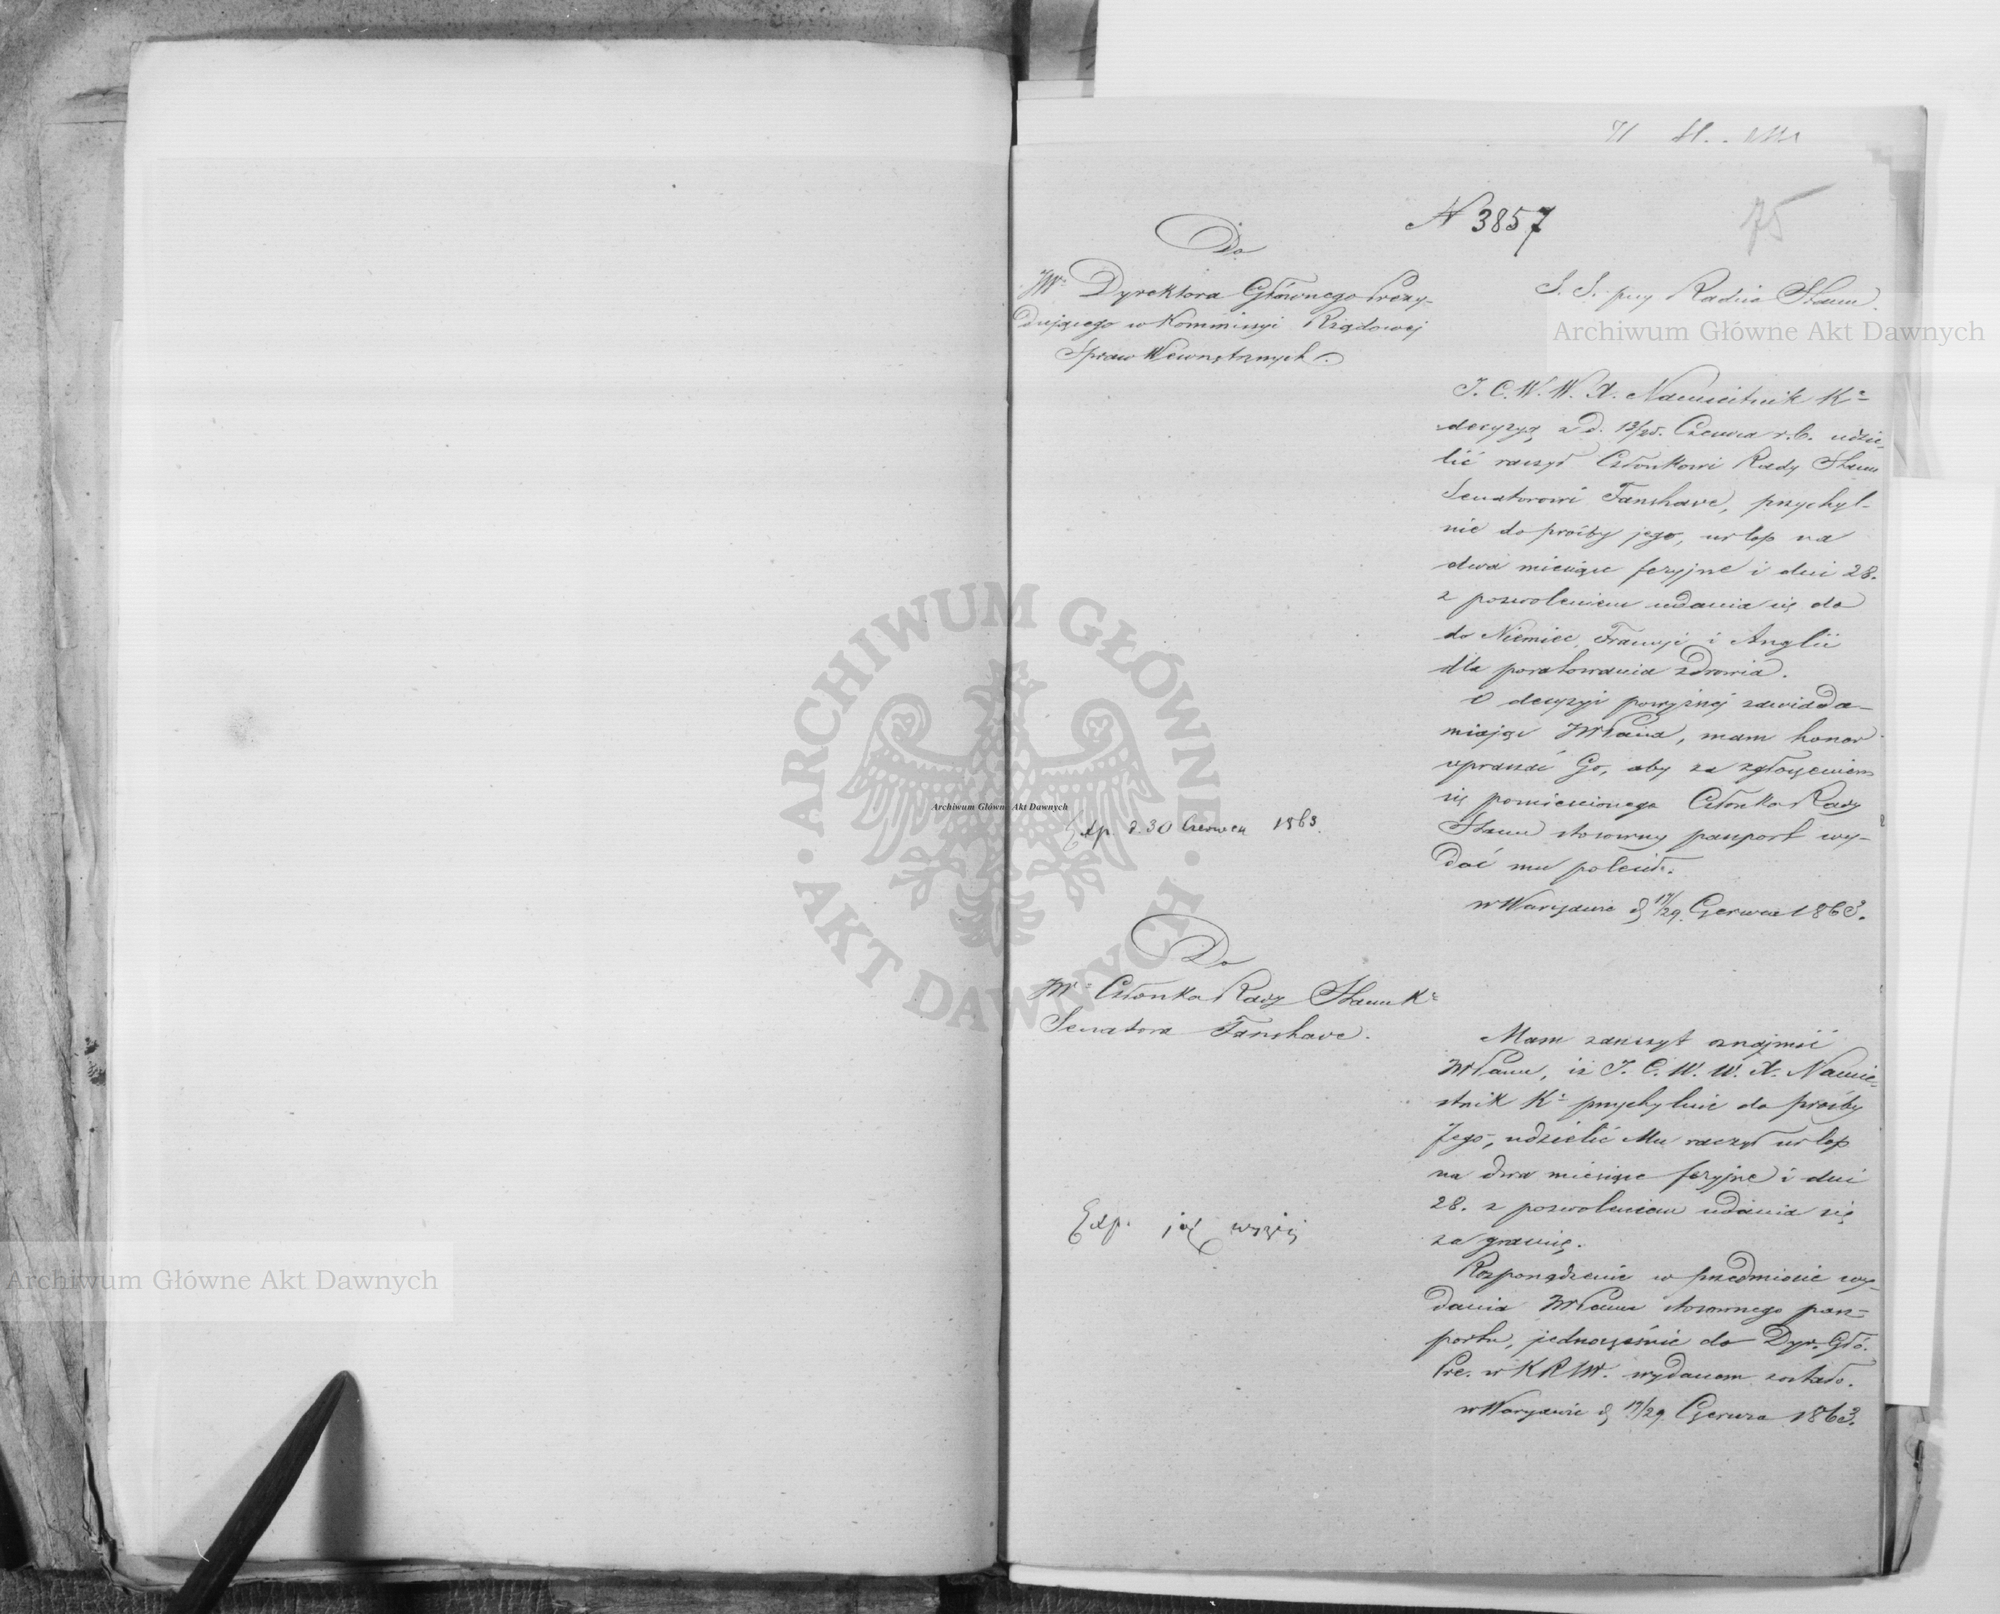 75
N 3857
Do
JW. Dyrektora Głównego Prezy-
dującego w Kommissyi Rządowej
Spraw Wewnętrznych.
S. S. przy Radzie Stanu.
J. C. W. W. X. Namiestnik K.
decyzyą z d. 13/25. Czerwca r. b. udzie-
lić raczył Członkowi Rady Stanu
Senatorowi Fanshave, przychyl-
nie do prośby jego, urlop na
dwa miesiące feryjne i dni 28.
z pozwoleniem udania się do
do Niemiec, Francyi i Anglii
dla poratowania zdrowia.
O decyzyi powyższej zawiada-
miając JWPana, mam honor
upraszać Go, aby za zgłoszeniem
się pomienionego Członka Rady
Stanu stosowny paszport wy-
dać mu polecił.
w Warszawie d. 17/29. Czerwca 1863.
Exp. d. 30 Czerwca 1863.
Do
JW. Członka Rady Stanu K.
Senatora Fanshave.
Mam zaszczyt oznajmić
JWPanu, iż J. C. W. W. X. Namie-
stnik K. przychylnie do prośby
Jego, udzielić Mu raczył urlop
na dwa miesiące feryjne i dni
28. z pozwoleniem udania się
za granicę.
Rozporządzenie w przedmiocie wy-
dania JWPanu stosownego pasz-
portu, jednocześnie do Dyr. Głó.
Pre. w KRSW. wydanem zostało.
w Warszawie d. 17/29. Czerwca 1863.
Exp. jak wyżej
Archiwum Główne Akt Dawnych
Archiwum Główne Akt Dawnych
Archiwum Główne Akt Dawnych
ARCHIWUM GŁÓWNE · AKT DAWNYCH ·